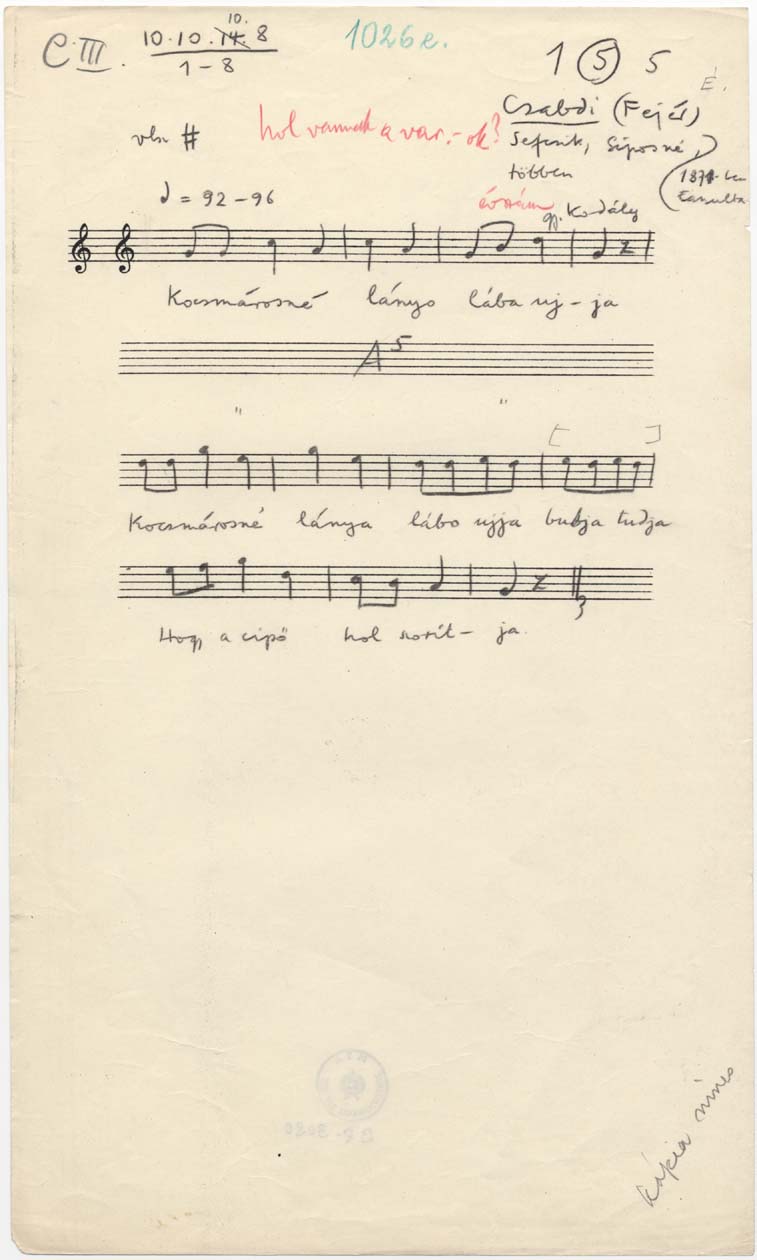 C. III. 10.10.14.8 10.
1-8
1026e.
1 5 5
É.
hol vannak a var.-ok?
Csabdi (Fejér)
Sefcsik, Siposné,
többen
♩ = 92-96
évszám
gy. Kodály
Kocsmárosné lányo lába uj-ja
A5
" "
[ ]
Kocsmárosné lánya lábo ujja bubja tudja
Hogy a cipő hol szorít- ja.
kópia nincs